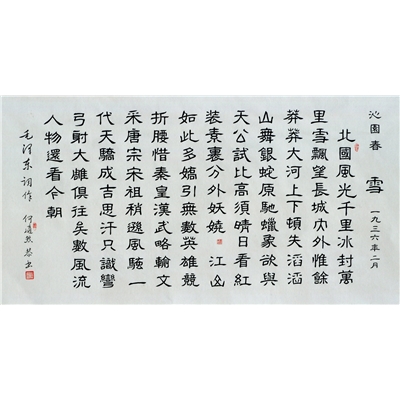 沁園春 雪 一九三六年二月
北國風光千里冰封萬
里雪飄望長城内外惟餘
莽莽大河上下頓失滔滔
山舞銀蛇原馳蠟象欲與
天公試比高須晴日看紅
裝素裹分外妖嬈 江山
如此多嬌引無數英雄競
折腰惜秦皇漢武略輸文
采唐宗宋祖稍遜風騷一
代天驕成吉思汗只識彎
弓射大雕俱往矣數風流
人物還看今朝
毛泽东词作 何